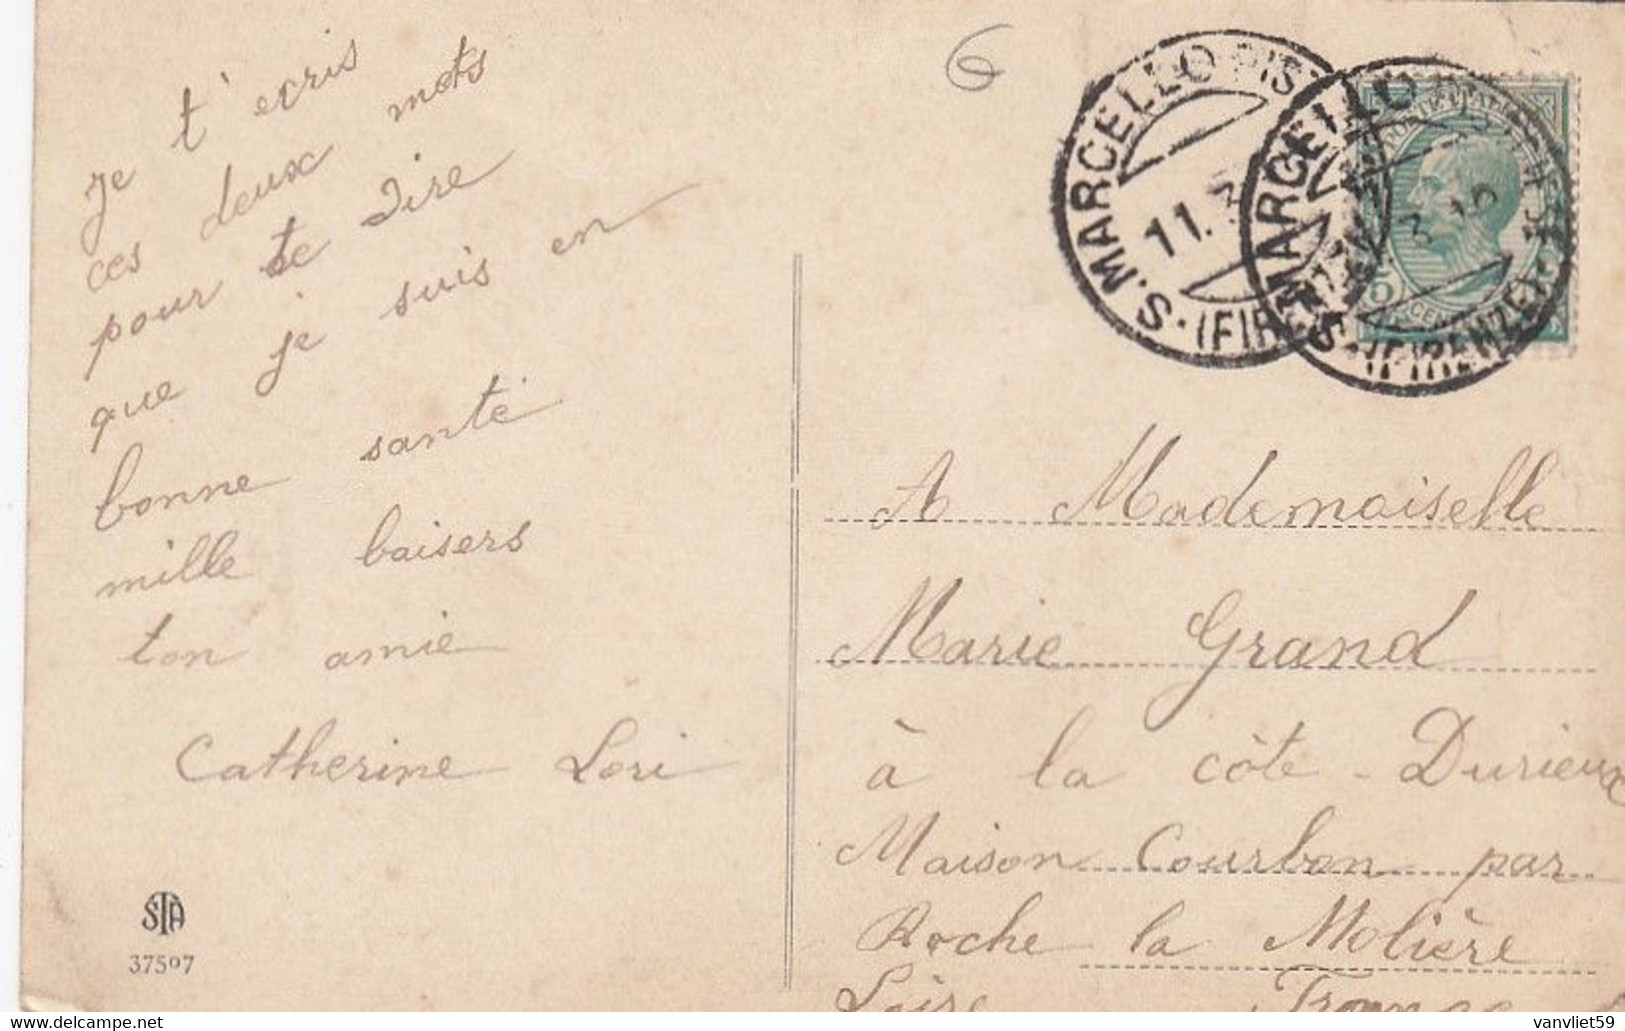 je t'ecris
ces deux mots
pour te dire
que je suis en
bonne santé
mille baisers
ton amie
Catherine Lori
STA
37507
6
S. MARCELLO PIS
11.3
(FIR
MARCELLO
3 16
(FIRENZE)
A Mademoiselle
Marie Grand
à la côte - Durieux
Maison Courbon par
Roche la Molière
Loire France
vanvliet59